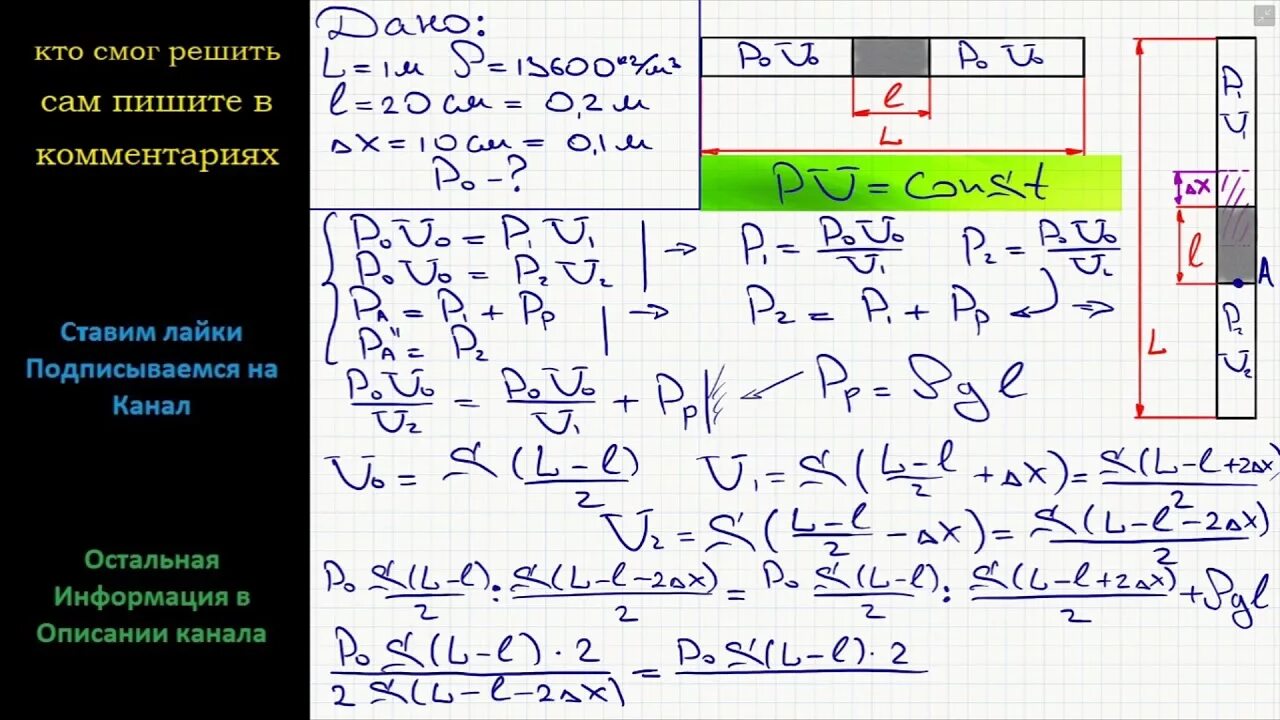 кто смог решить
сам пишите в
комментариях
Ставим лайки
Подписываемся на
Канал
Остальная
Информация в
Описании канала
Дано:
L = 1 м ρ = 13600 кг/м³
l = 20 см = 0,2 м
Δx = 10 см = 0,1 м
P₀ - ?
P₀ V₀ P₀ V₀
l
L
PV = const
P₁
V₁
Δx
l
A
L
P₂
V₂
P₀V₀ = P₁V₁ → P₁ = P₀V₀/V₁ P₂ = P₀V₀/V₂
P₀V₀ = P₂V₂
P_A = P₁ + P_р → P₂ = P₁ + P_р ⇒
P_A" = P₂
P₀V₀/V₂ = P₀V₀/V₁ + P_р P_р = ρgl
V₀ = S(L-l)/2 V₁ = S((L-l)/2 + Δx) = S(L-l+2Δx)/2
V₂ = S((L-l)/2 - Δx) = S(L-l-2Δx)/2
P₀S(L-l)/2 : S(L-l-2Δx)/2 = P₀S(L-l)/2 : S(L-l+2Δx)/2 + ρgl
P₀S(L-l)·2/2S(L-l-2Δx) = P₀S(L-l)·2